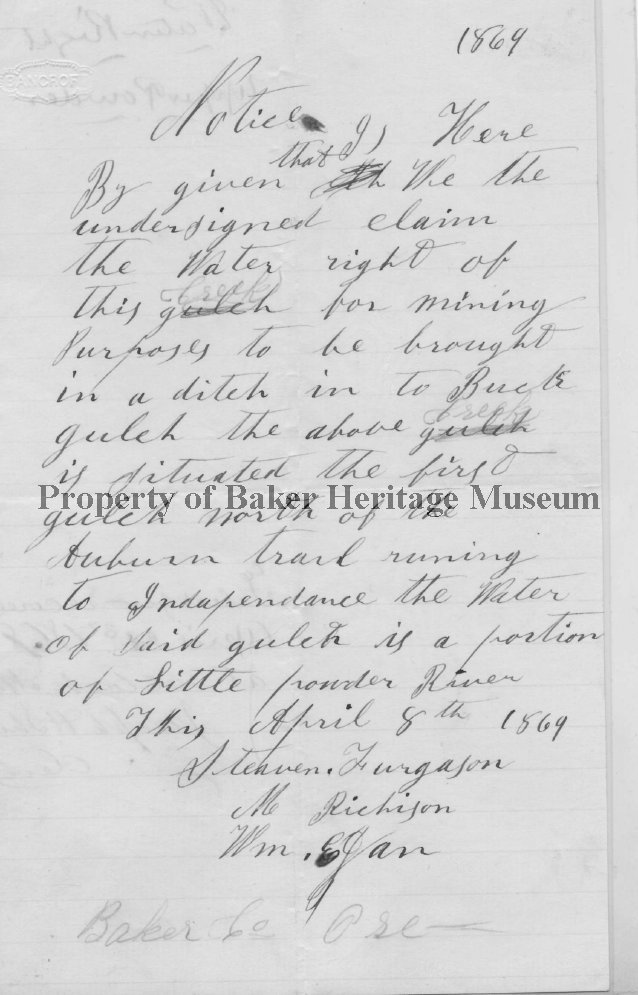 1869
Notice Is Here
that
By given We the
undersigned claim
the Water right of
Creek
this gulch for mining
Purposes to be brought
in a ditch in to Buck
Creek
gulch the above gulch
is situated the first
Property of Baker Heritage Museum
gulch north of the
Auburn trail runing
to Indapendance the Water
of Said gulch is a portion
of Little powder River
This April 8th 1869
Steaven. Furgason
M Richison
Wm. Egan
Baker Co Ore